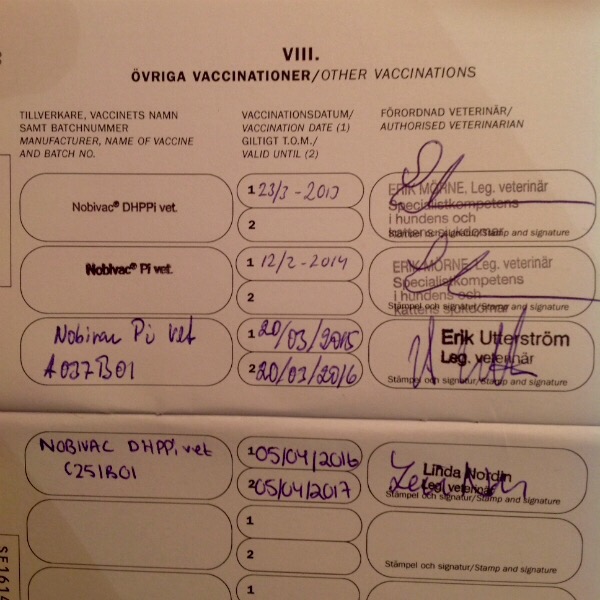 VIII.
ÖVRIGA VACCINATIONER/OTHER VACCINATIONS
TILLVERKARE, VACCINETS NAMN
SAMT BATCHNUMMER
MANUFACTURER, NAME OF VACCINE
AND BATCH NO.
VACCINATIONSDATUM/
VACCINATION DATE (1)
GILTIGT T.O.M./
VALID UNTIL (2)
FÖRORDNAD VETERINÄR/
AUTHORISED VETERINARIAN
Nobivac® DHPPi vet.
1 23/3-2013
2
ERIK MÖRNE, Leg. veterinär
Specialistkompetens
i hundens och
kattens sjukdomar
Stämpel och signatur/Stamp and signature
Nobivac® Pi vet.
1 12/2-2014
2
ERIK MÖRNE, Leg. veterinär
Specialistkompetens
i hundens och
kattens sjukdomar
Stämpel och signatur/Stamp and signature
Nobivac Pi vet
A037B01
1 20/03/2015
2 20/03/2016
Erik Utterström
Leg. veterinär
Stämpel och signatur/Stamp and signature
NOBIVAC DHPPi vet
C251B01
1 05/04/2016
2 05/04/2017
Linda Nordin
Leg. veterinär
Stämpel och signatur/Stamp and signature
1
2
Stämpel och signatur/Stamp and signature
1
SE1614